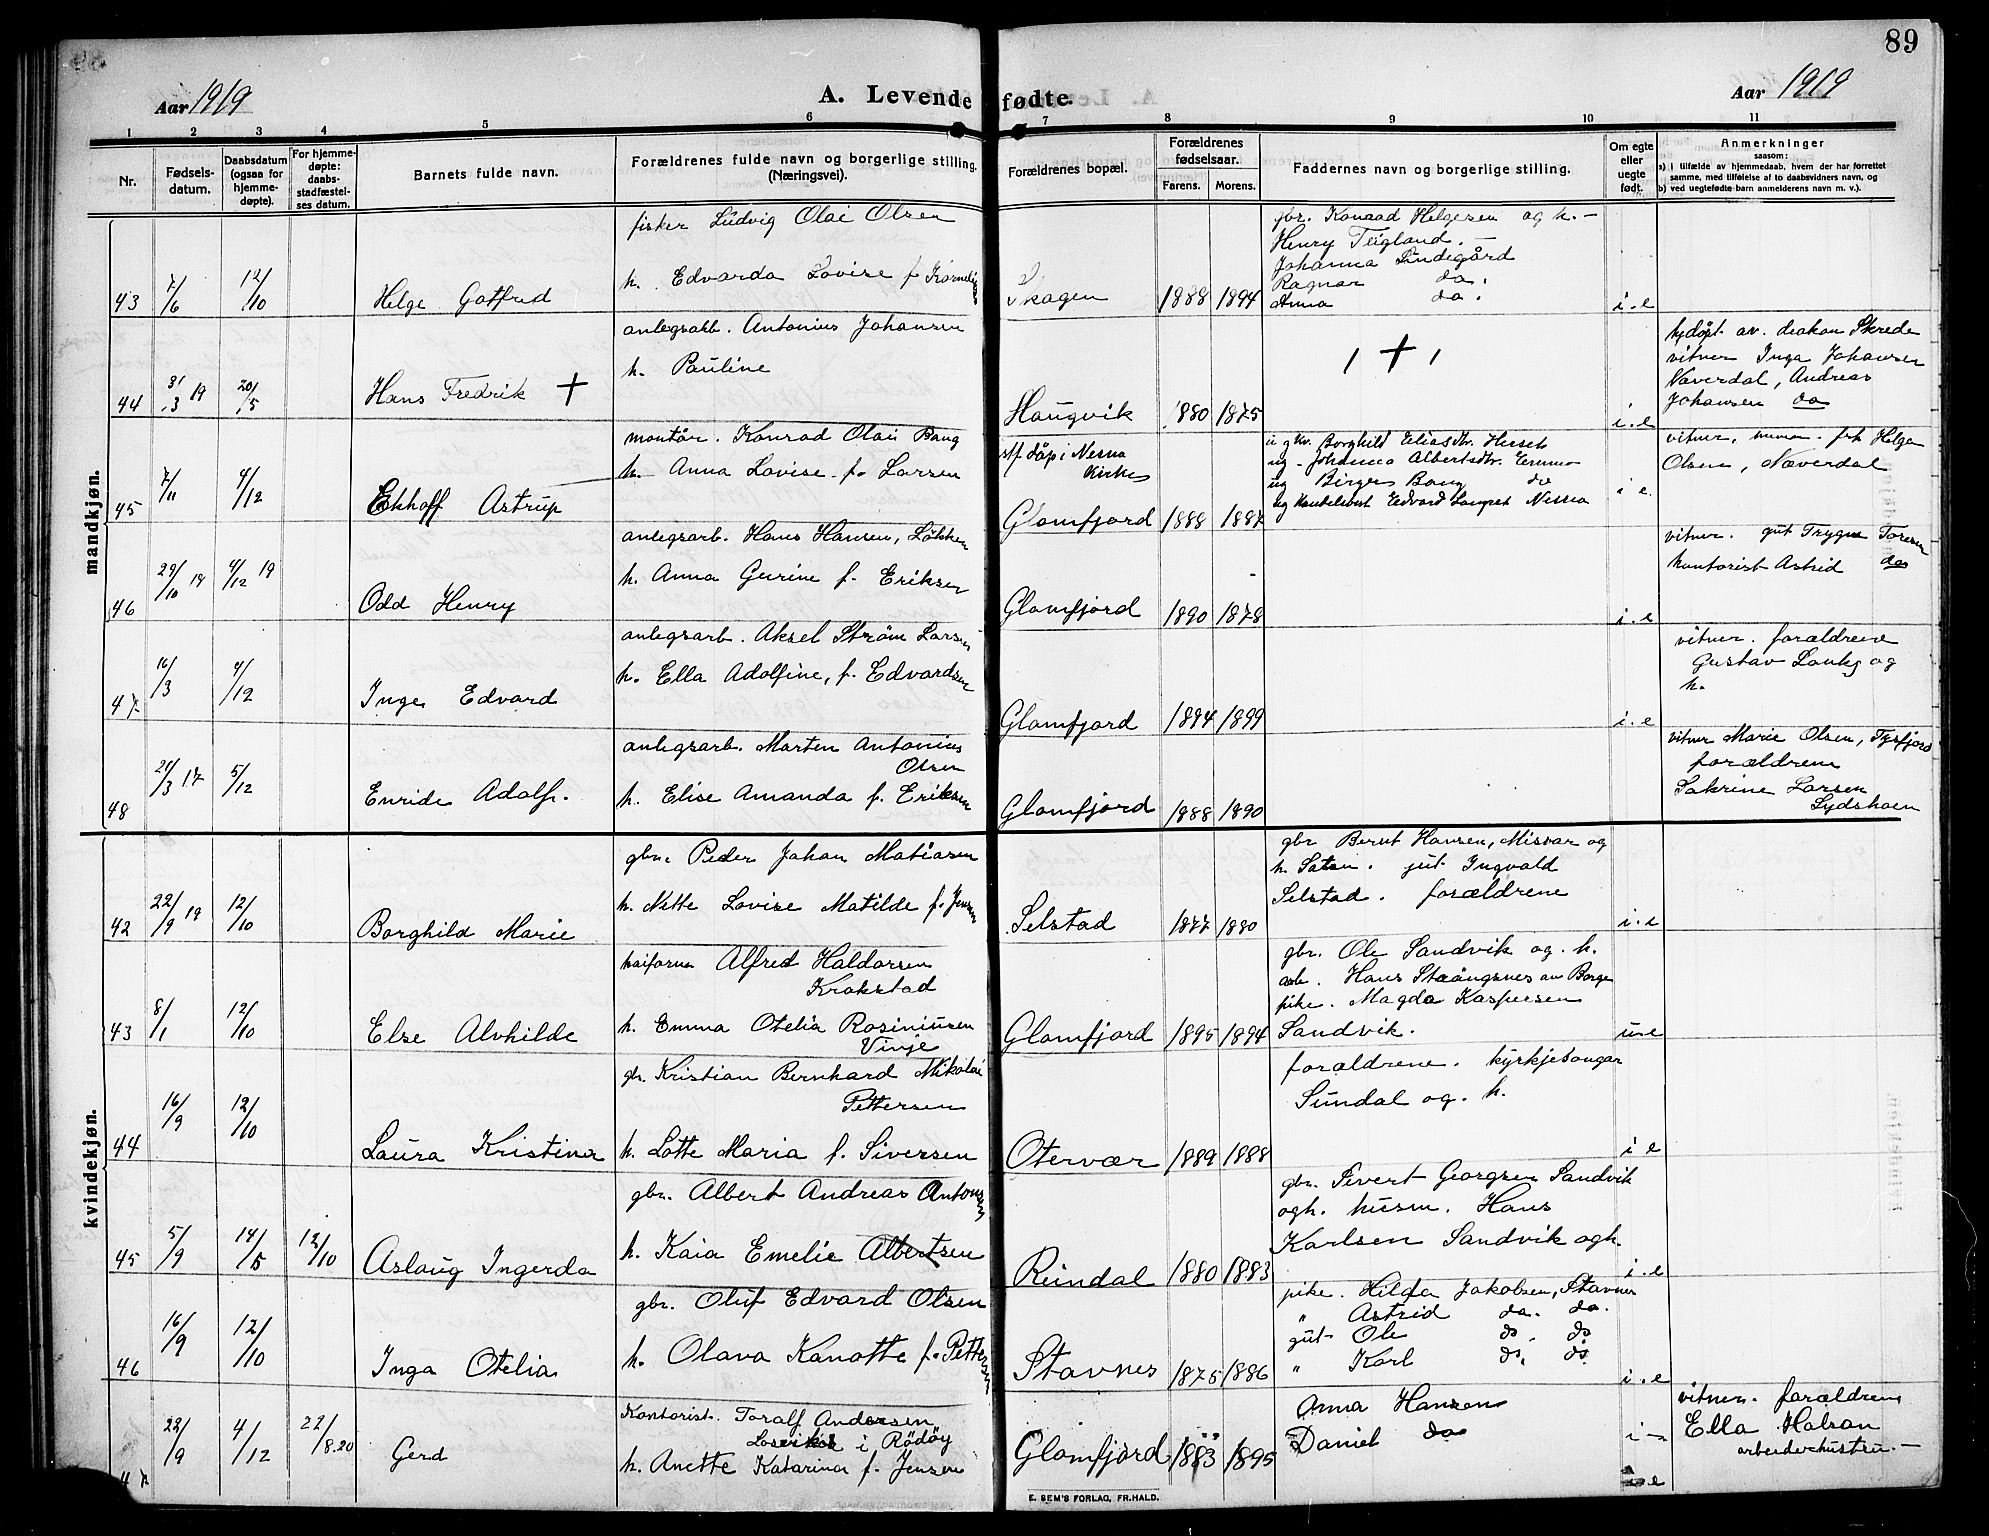 89
Aar 1919
A. Levende fødte.
Aar 1919
1 2 3 4 5 6 7 8 9 10 11
Nr.
Fødsels-
datum.
Daabsdatum
(ogsaa for
hjemme-
døpte).
For hjemme-
døpte:
daabs-
stadfæstel-
ses datum.
Barnets fulde navn.
Forældrenes fulde navn og borgerlige stilling.
(Næringsvei).
Forældrenes bopæl.
Forældrenes
fødselsaar.
Farens. Morens.
Faddernes navn og borgerlige stilling.
Om egte
eller
uegte
født.
Anmerkninger
saasom:
a) i tilfælde av hjemmedaab, hvem der har forrettet
samme, med tilføielse af to daabsvidners navn, og
b) ved uegtefødte barn anmelderens navn m. v.).
mandkjøn.
fisker Ludvig Olai Olsen
h. Edvarda Lovise f.
43 7/6 12/10 Helge Gotfred
Skagen 1888 1894
gbr. Konrad Helgesen og h. -
Henry Teigland. -
Johanna Lindegård
Ragnar do.
Anna do.
i.e
anlegsarb. Antonius Johansen
h. Pauline
44 31/3 19 20/5 Hans Fredrik +
Haugvik 1880 1875
+
i.e
hjdøpt av. deakon Skrede
vitner Inga Johansen
Næverdal, Andreas
Johansen do
montør. Konrad Olai Bang
h. Anna Lovise f. Larsen
45 7/11 4/12 Ekhoff Astrup
stf dåp i Nesna
Kirke
Glomfjord 1888 1887
ug kv. Borghild Eliasdtr. Husset
ug - Johanna Albertsdtr.
ug Birger Bang do
ug Edvard Nesna
i e
vitner, Helga
Olsen, Næverdal
anlegsarb. Hans Hansen, Løkken
h. Anna Gurine f. Eriksen
46 29/10 18 4/12 19 Odd Henry
Glomfjord 1890 1878
i.e
vitner. gut Trygve Toresen
kontorist Astrid do
anlegsarb. Aksel Strøm Larsen
h. Ella Adolfine, f. Edvardsen
47 16/3 4/12 Inge Edvard
Glomfjord 1894 1899
i.e
vitner. forældrene
Gustav og
h.
anlegsarb. Morten Antonius
Olsen
h. Elise Amanda f. Eriksen
48 21/3 17 5/12 Enride Adolf.
Glomfjord 1888 1890
vitner Marie Olsen, Tysfjord
forældrene
Sakrine Larsen
kvindekjøn.
gbr. Peder Johan Matiasen
h. Nette Lovise Matilde f. Jensen
42 22/9 19 12/10 Borghild Marie
Selstad 1877 1880
gbr Bernt Hansen, Misvær og
h. gut Ingvald
Selstad. forældrene
i.e
Alfred Haldorsen
Krokstad
h. Emma Otelia Rosiniusen
Vinje
43 8/1 12/10 Else Alvhilde
Glomfjord 1895 1894
gbr. Ole Sandvik og. h.
arb. Hans
pike. Magda Kaspersen
Sandvik.
u e
gbr. Kristian Bernhard Mikolai
Pettersen
h. Lotte Maria f. Sivertsen
44 16/9 12/10 Laura Kristina
Otervær 1889 1888
forældrene. kyrkjesongar
Sundal og. h.
i e
gbr. Albert Andreas Antonsen
h. Kaia Emelie Albertsen
45 5/9 14/5 12/10 Aslaug Ingerda
Reindal 1880 1883
gbr. Sivert Georgsen Sandvik
ogh. husm. Hans
Karlsen Sandvik ogh.
i.e
gbr. Oluf Edvard Olsen
h. Olava Kanotte f. Pettersen
46 16/9 12/10 Inga Otelia
Stavnes 1875 1886
pike. Hilda Jakobsen, Stavnes
" Astrid do. do.
gut Ole do. do
" Karl do. do.
i.e
Kontorist. Toralf Andersen
i Rødøy
h. Anette Katarina f. Jensen
47 22/9 4/12 22/8.20 Gerd
Glomfjord 1883 1895
Anna Hansen
Daniel do
i
vitner. forældrene
Ella Halsan
arbeiderhustru. -
E. SEM'S FORLAG, FR.HALD.